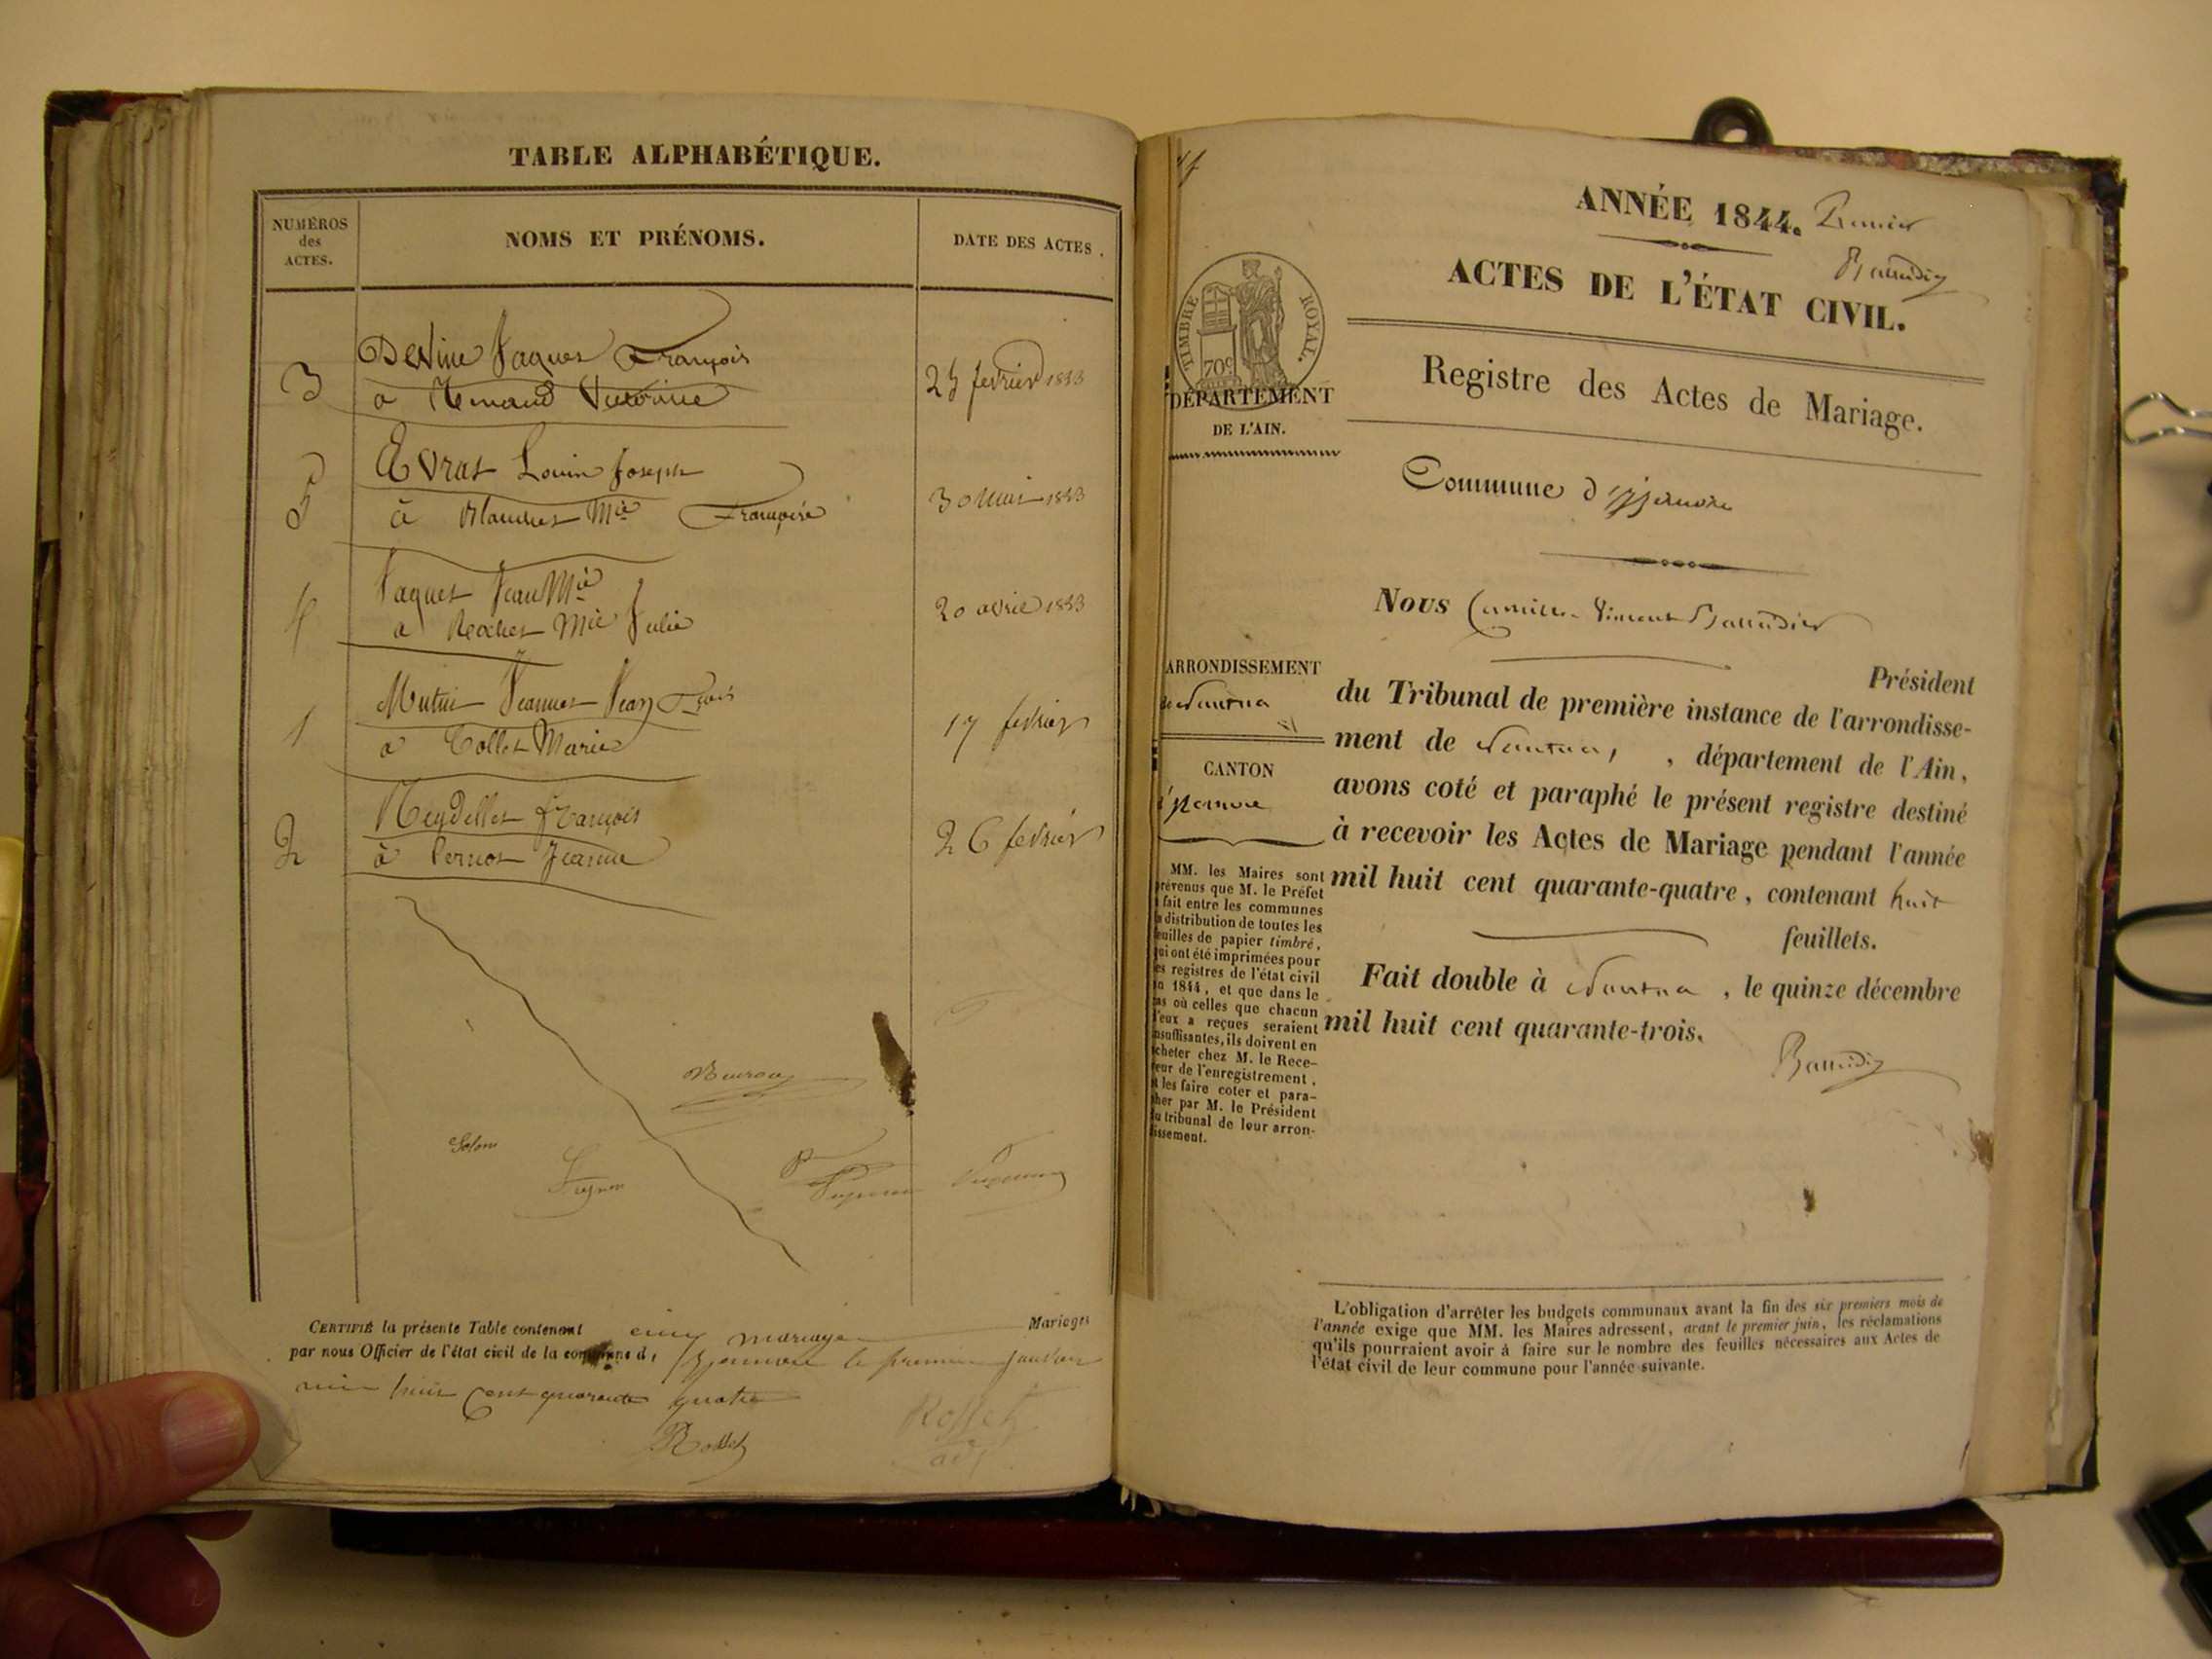 TABLE ALPHABÉTIQUE.
NUMÉROS
des
ACTES.
NOMS ET PRÉNOMS.
DATE DES ACTES.
3
Jaques François
à Renaud
25 fevrier 1843
5
Evrat Louis Joseph
à Blanchet Mie Françoise
30 mai 1843
4
Jaquet Jean Mie
à Rochet Mie Julie
20 avril 1843
1
Jean Fçois
à Collet Marie
17 fevrier
2
Reydellet François
à Pernot Jeanne
26 fevrier
CERTIFIÉ la présente Table contenant cinq mariages Mariages
par nous Officier de l'état civil de la commune d' Izernore le premier janvier
mil huit cent quarante quatre
Rosset
Rosset
adj
ANNÉE 1844. Premier
ACTES DE L'ÉTAT CIVIL.
TIMBRE ROYAL.
70c
DÉPARTEMENT
DE L'AIN.
Registre des Actes de Mariage.
Commune d'Izernore
Nous Camille Vincent Baudier
Président
ARRONDISSEMENT
de Nantua
du Tribunal de première instance de l'arrondisse-
ment de Nantua, , département de l'Ain,
CANTON
d'Izernore
avons coté et paraphé le présent registre destiné
à recevoir les Actes de Mariage pendant l'année
mil huit cent quarante-quatre, contenant huit
feuillets.
Fait double à Nantua, le quinze décembre
mil huit cent quarante-trois.
MM. les Maires sont
prévenus que M. le Préfet
a fait entre les communes
la distribution de toutes les
feuilles de papier timbré,
qui ont été imprimées pour
les registres de l'état civil
en 1844, et que dans le
cas où celles que chacun
d'eux a reçues seraient
insuffisantes, ils doivent en
acheter chez M. le Rece-
veur de l'enregistrement,
et les faire coter et para-
pher par M. le Président
du tribunal de leur arron-
dissement.
L'obligation d'arrêter les budgets communaux avant la fin des six premiers mois de
l'année exige que MM. les Maires adressent, avant le premier juin, les réclamations
qu'ils pourraient avoir à faire sur le nombre des feuilles nécessaires aux Actes de
l'état civil de leur commune pour l'année suivante.